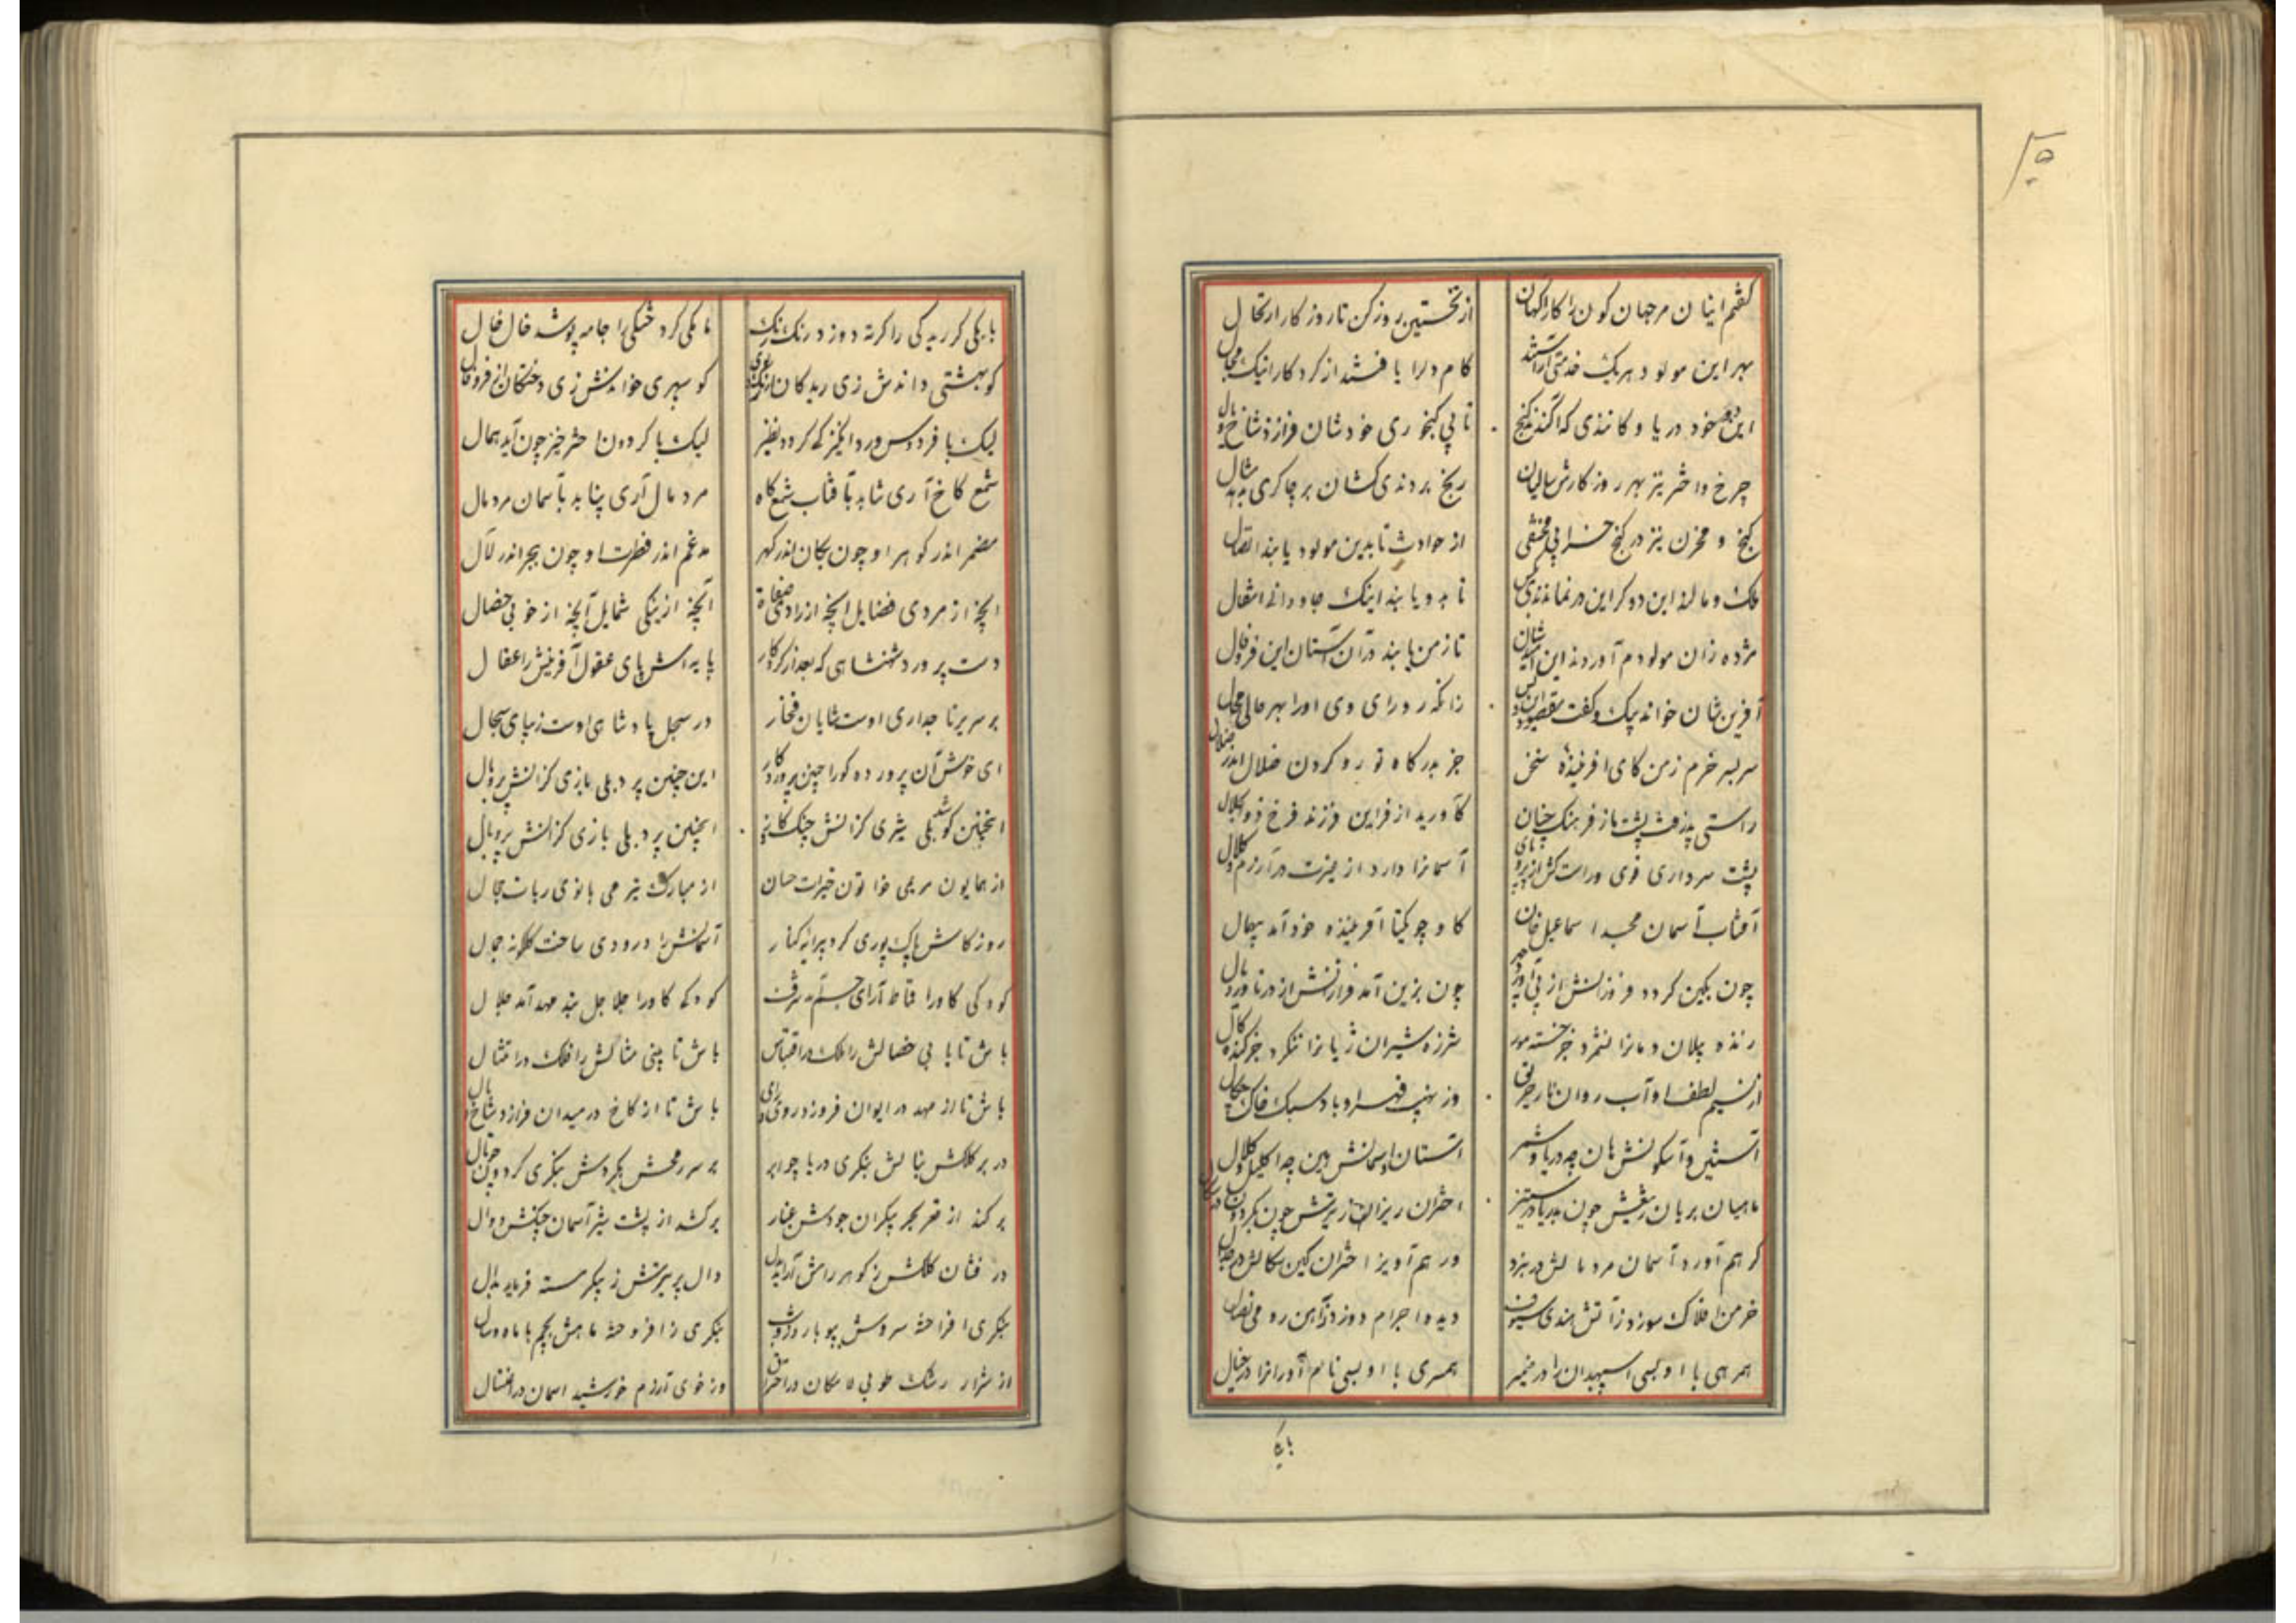 گفتم اینان مر جهان کون را کار اکهان
از نخستین روز کن تا روز کار ارتحال
بهر این مولود هر یک خدمتی آراستند
کام دل را یافتند از کردکار اینک مجال
این خود دریا و کانندی که آکندند کنج
تا پی کنجوری خودشان فرازد شاخ و یال
چرخ و اختر نیز بهر روزکارش سالیان
رنج بردندی کشان بر چاکری مثال
کنج و مخزن نیز در کنج خرابی مختفی
از حوادث تا بدین مولود یابند اتصال
ملک و مال ار این دو کر این در نماندندی بکس
تا بدو یابند اینک جاودانه انتقال
مژده زان مولودم آوردند این
تا ز من یابند در آن آستان این فر و فال
آفرین شان خواند پیک و کفت
زانکه ر و رای وی او را بهر حالی مجال
سر بسر خرم ز من کای آفریننده سخن
جز بدرکاه تو رو کردن ضلال اندر ضلال
راستی پذرفت پشت باز فرهنک چنان
کآورید از فر این فرزند فرخ ذو الجلال
پشت سرداری قوی وراست
آسمانرا دارد از غیرت در آزرم و کلال
آفتاب آسمان مجد اسماعیل خان
کاو چو یکتا آفریننده خود آمد بیهمال
چون بکین کردد فروزانش از پی
چون بزین آمد فرازنش از در ناورد یال
زنده پیلان دمانرا نشمرد جز خسته مور
شرزه شیران ژیانرا ننکرد جز کنده کال
از نسیم لطف او آب روان نار حریق
وز نهیب قهر او باد سبک خاک
آستین و آسکونش هان چه دریا و شمر
آستان و آسمانش بین چه اکلیل و کلال
ماهیان بریان ز تیغش چون بدریا در ستیز
اختران ریزان ز تیرش چون بکردون در
کر هم آورد آسمان مرد مالش در نبرد
ور هم آویز اختران کین سکالش در جدال
خرمن افلاک سوزد ز آتش هندی سیوف
دیده اجرام دوزد ز آهن رومی نصال
همرهی با او بسی اسپهبدان را در ضمیر
همسری با او بسی نام آورانرا در خیال
با یکی
با یکی کر رید کی را کرته دوزد رنک رنک
با یکی کرد ختکی را جامه پوشد خال خال
کو بهشتی داندش زی ریدکان
کو سپهری خواندش زی دختکان از فر و فال
لیک با فردوس ورد انکیز که کردد نظیر
لیک با کردون اخترخیز چون آید همال
شمع کاخ آری نشاید بآفتاب شمع کاه
مرد مال آری نپاید بآسمان مرد مال
مضمر اندر کوهر او چون بکان اندر کهر
مدغم اندر فطرت او چون ببحر اندر لآل
آنچه از مردی فضایل آنچه از رادی صفات
آنچه از نیکی شمایل آنچه از خوبی خصال
دست پرورد شهنشاهی که بعد از کردکار
پایه اش پای عقول آفرینش را عقال
بر سریر تاجداری اوست شایان فخار
در سجل پادشاهی اوست زیبای سجال
ای خوش آن پرورده کورا چنین پروردکار
این چنین پرد بلی بازی کز آنش پر و بال
اینچنین کوشد بلی شیری کز آنش چنک
اینچنین پرد بلی بازی کز آنش پر و بال
از همایون مریمی خواتون خیرات حسان
از مبارک نیز می بانوی ربات حجال
روزکارش پاک پوری کرد پیرایه کنار
آسمانش را درودی ساخت کلکونه جمال
کودکی کاورا قماط آرای جسم آمد شرف
کودکه کاورا جلاجل بند مهد آمد جلال
باش تا یابی خصالش را ملک در اقتباس
باش تا بینی مثالش را فلک در امتثال
باش تا از مهد در ایوان فروزد روی و رای
باش تا از کاخ در میدان فرازد شاخ و یال
در بر کلکش بنالش بنکری دریا چو ابر
بر سر رمحش بکردش بنکری کردون
بر کند از قعر بحر پیکران جودش غبار
بر کشد از پشت شیر آسمان چنکش دوال
در فشان کلکش ز کوهر راش آراید
دال پر تیرش ز پیکر خسته فرماید بدال
بنکری افراخته سروش ببوبار
بنکری ز افروخته ماهش بچم با ماه و سال
از شرار رشک طوبی لامکان در احتراق
وز خوی آزرم خورشید آسمان در اغتسال